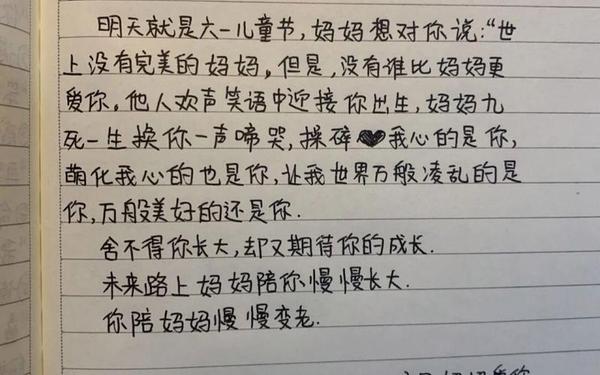 明天就是六一儿童节,妈妈想对你说:“世
上没有完美的妈妈。但是,没有谁比妈妈更
爱你。他人欢声笑语中迎接你出生,妈妈九
死一生换你一声啼哭,操碎❤我心的是你,
萌化我心的也是你,让我世界万般凌乱的是
你,万般美好的还是你.
舍不得你长大,却又期待你的成长.
未来路上妈妈陪你慢慢长大.
你陪妈妈慢慢变老.
妈妈爱你